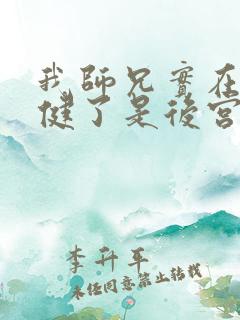 我師兄實在
健了是後宮
李升平
未經同意禁止轉載